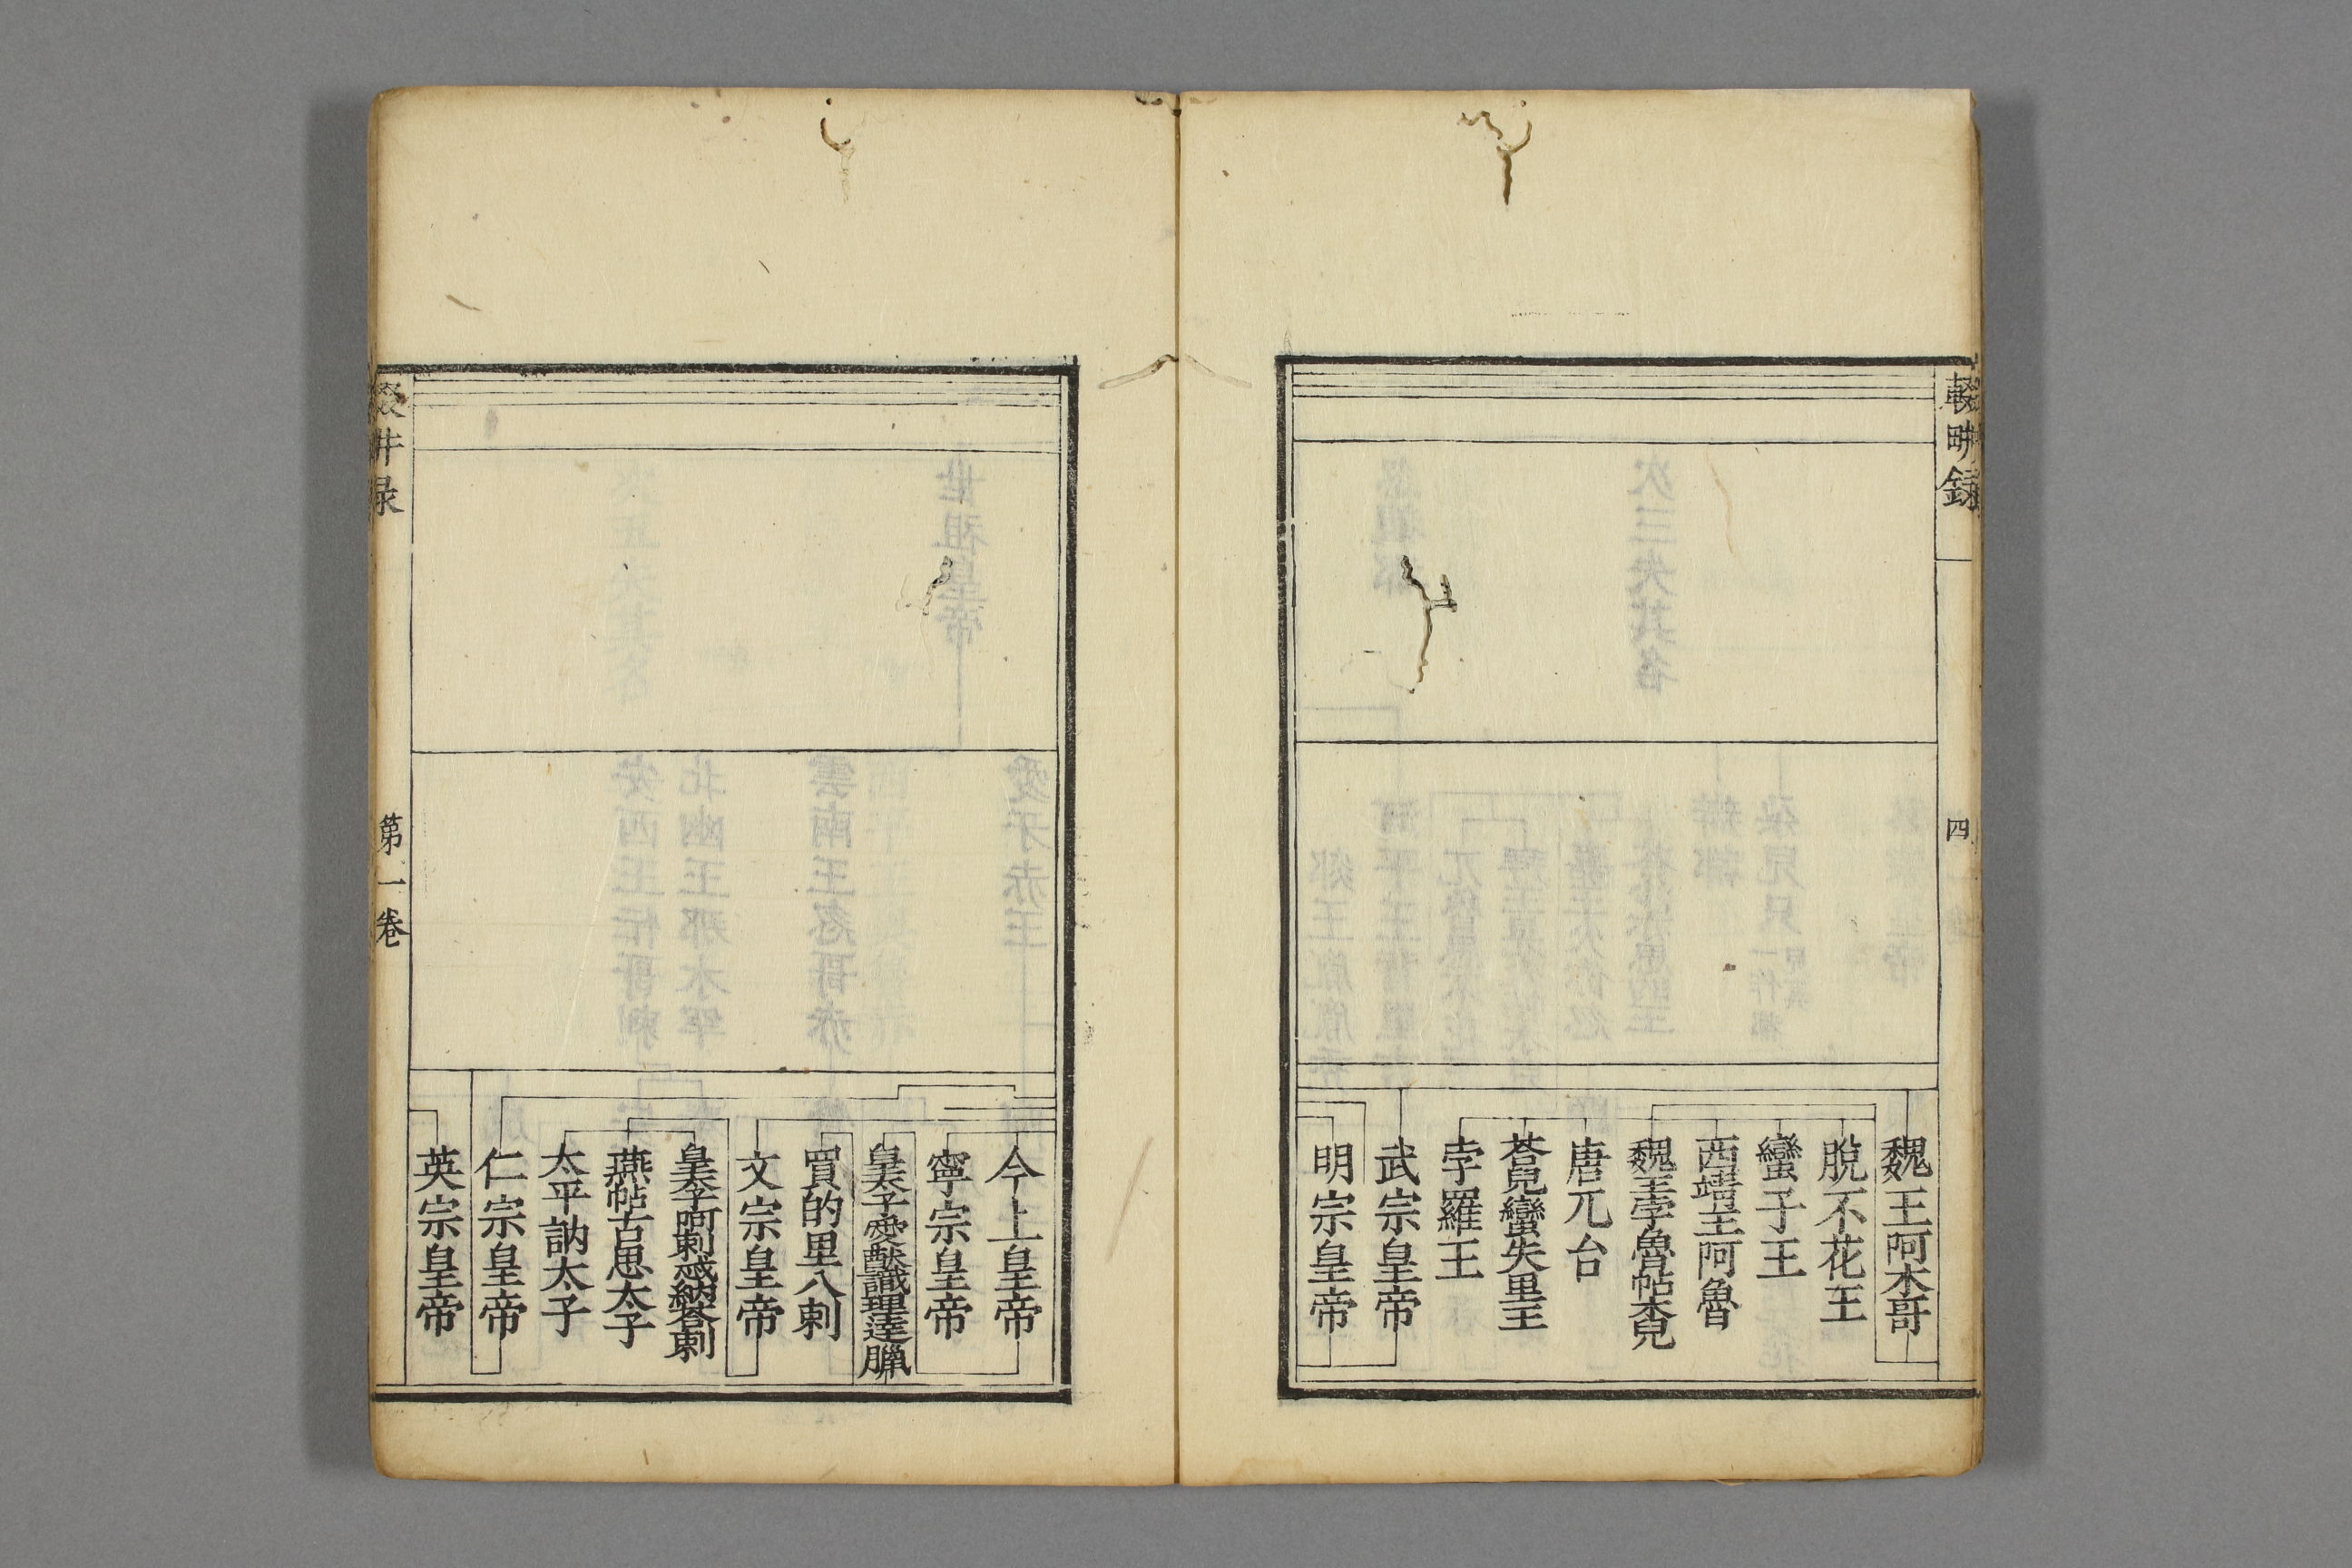 輟畊録
四
魏王阿木哥
脫不花王
蠻子王
西靖王阿魯
魏王孛魯帖木兒
唐兀台
荅兒蠻失里王
孛羅王
武宗皇帝
明宗皇帝
今上皇帝
寧宗皇帝
皇太子愛猷識理達臘
買的里八剌
文宗皇帝
皇太子阿剌忒納荅剌
燕帖古思太子
太平訥太子
仁宗皇帝
英宗皇帝
第一卷